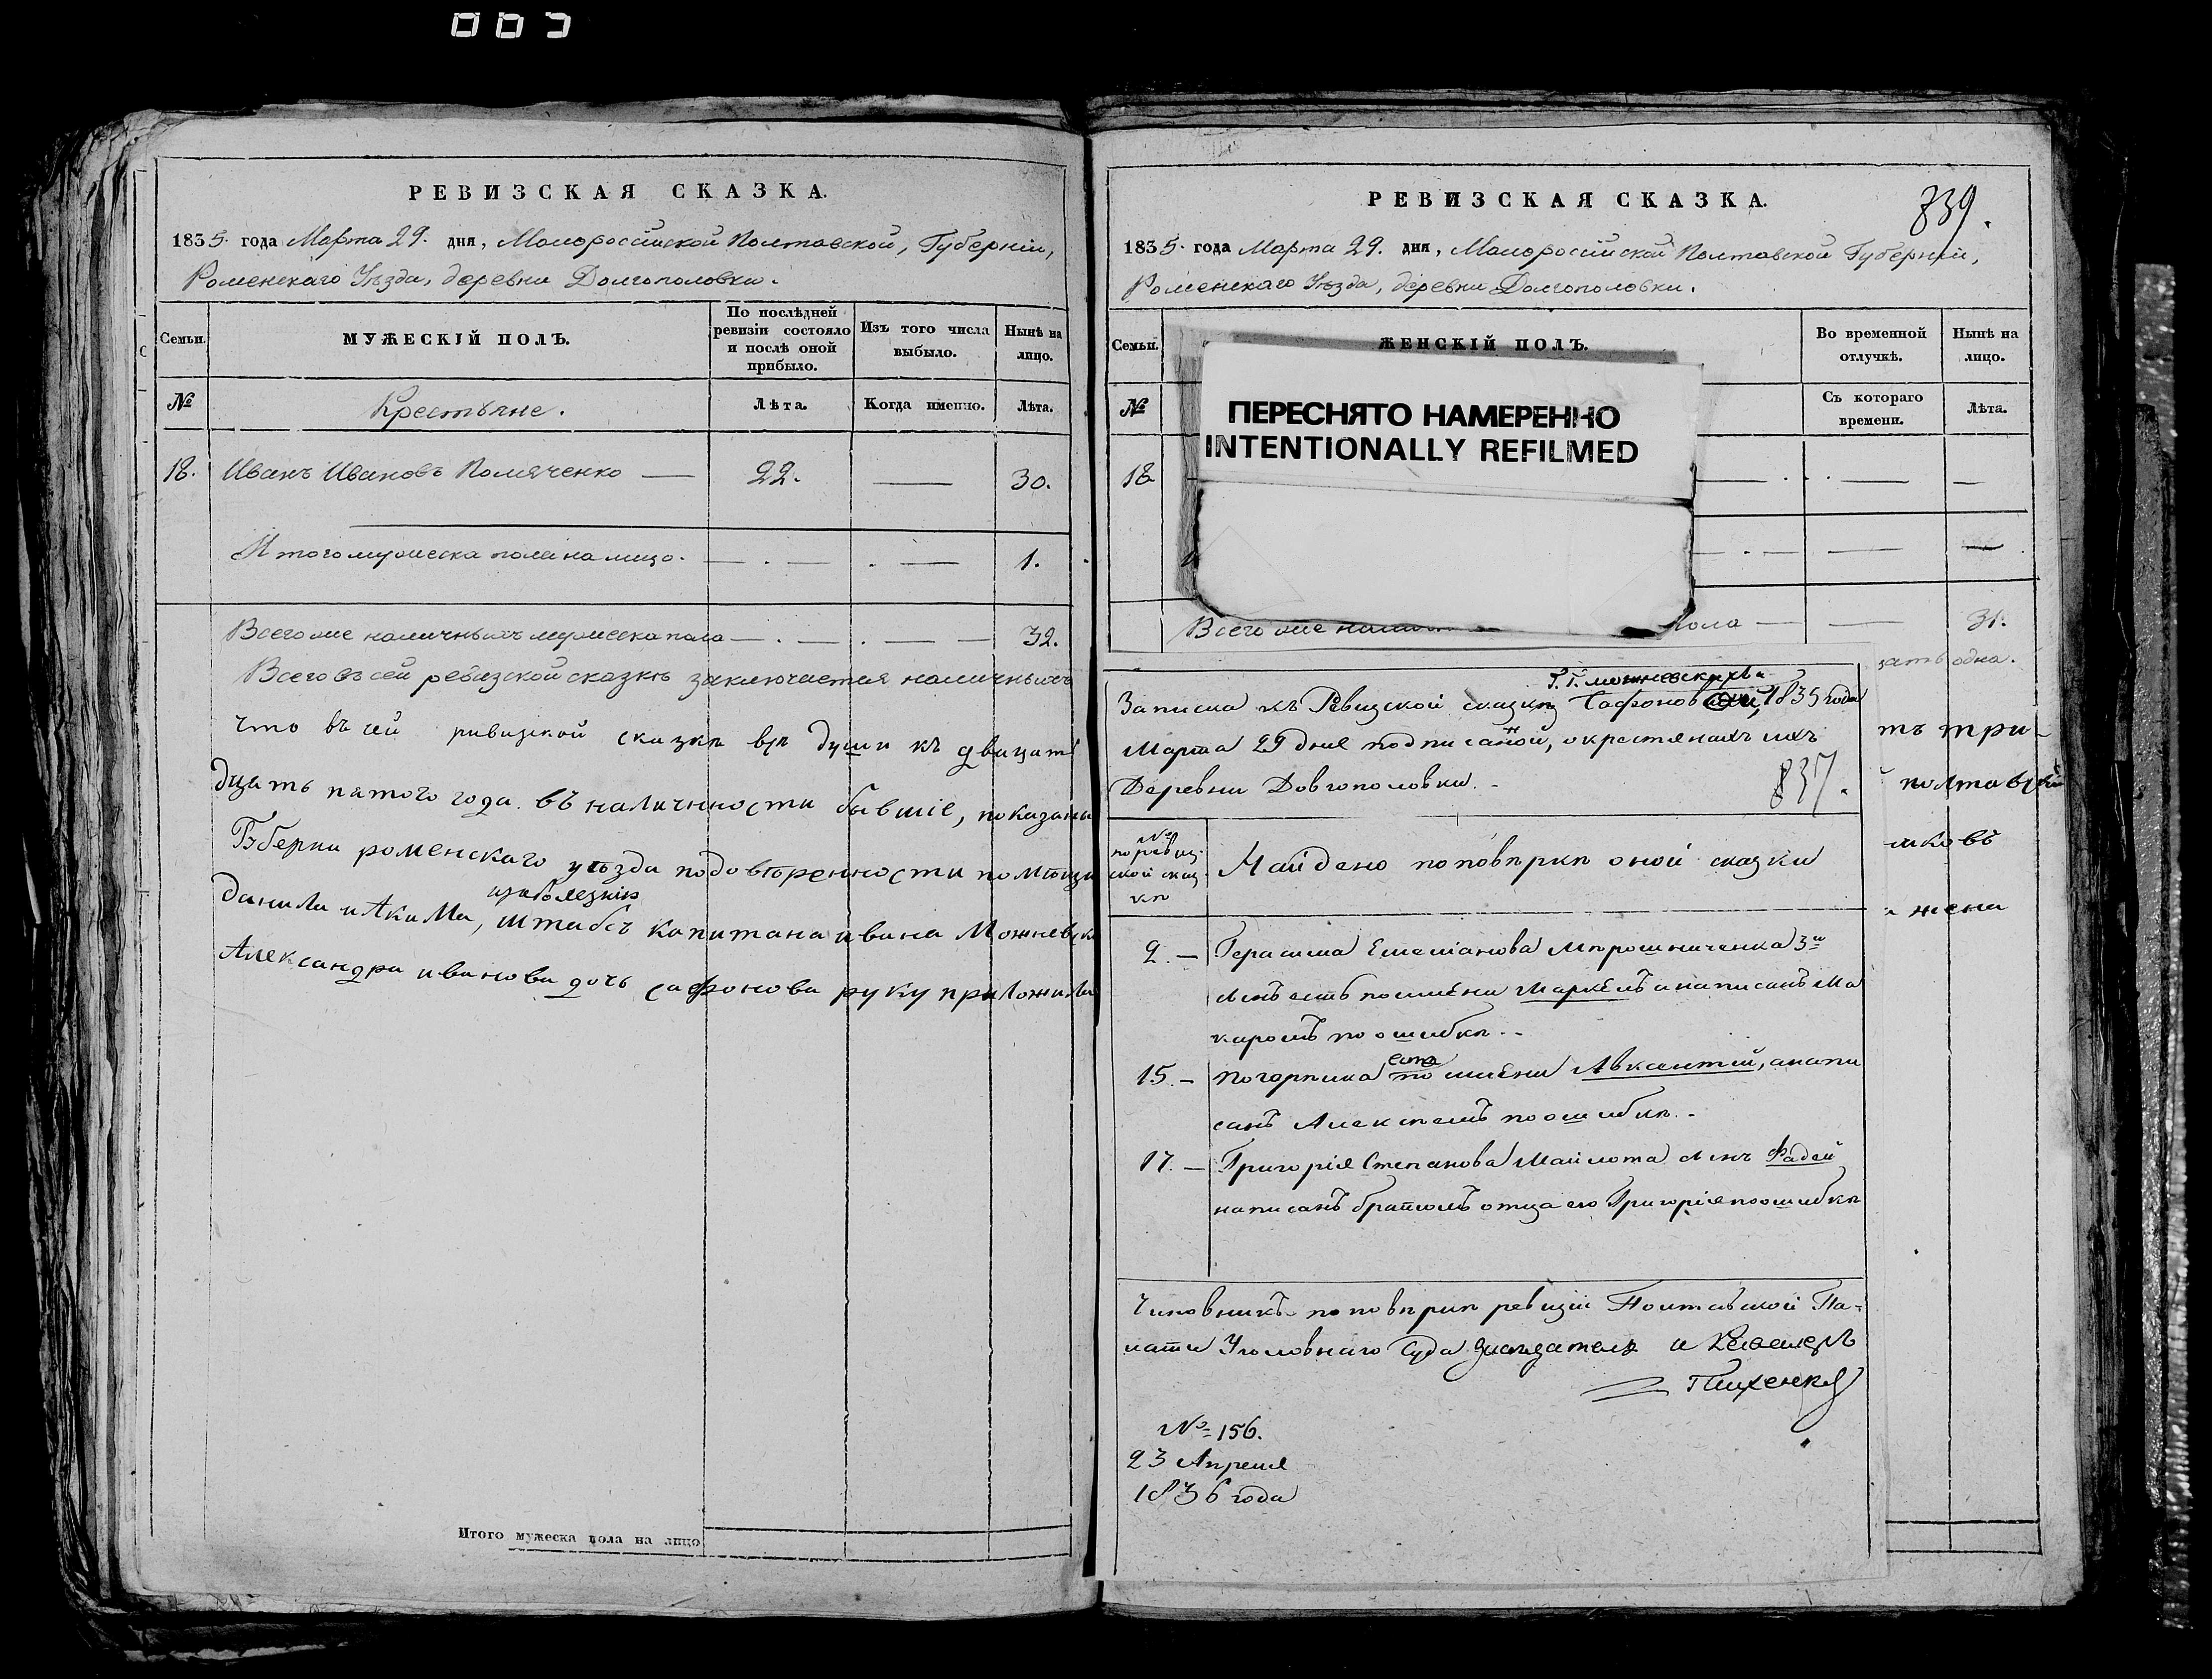 РЕВИЗСКАЯ СКАЗКА.
1835. года Марта 29. дня, Малоросiйской Полтавской, Губернiи,
Роменскаго Уѣзда, деревни Долгополовки.
Семьи.
МУЖЕСКIЙ ПОЛЪ.
По послѣдней ревизiи состояло и послѣ оной прибыло.
Изъ того числа выбыло.
Нынѣ на лицо.
№
Крестьяне.
Лѣта.
Когда именно.
Лѣта.
18. Иванъ Ивановъ Помяченко — 22. — 30.
Итого мужеска пола на лицо. — . — . — 1.
Всего же наличныхъ мужеска пола — . — . — — 32.
Всего въ сей ревизской сказкѣ заключается наличныхъ
Что въ сей ривизкой сказкѣ всѣ души къ двацать
дцать пятого года въ наличности бывшiе, показаны
Губерни роменскаго уѣзда по довѣренности помѣщи
изаболезнiю
данила и Акима, штабсъ капитана ивана Можневск
Александра иванова дочь сафонова руку приложила
Итого мужеска пола на лицо
РЕВИЗСКАЯ СКАЗКА.
839.
1835. года Марта 29. дня, Малоросiйской Полтавской Губернiи,
Роменскаго Уѣзда, деревни Долгополовки.
Семьи.
ЖЕНСКIЙ ПОЛЪ.
Во временной отлучкѣ.
Нынѣ на лицо.
№
Съ котораго времени.
Лѣта.
ПЕРЕСНЯТО НАМЕРЕННО
INTENTIONALLY REFILMED
18
Всего же пола — — 31.
одна.
тъ три-
жена
Записка къ Ревизской сказкѣ Сафоновой, 1835 года
Марта 29 дня подписанной, о крестянахъ ихъ
Деревни Довгополовки.
837.
№ по ревизской сказкѣ
Найдено по повѣркѣ оной сказки
2. — Герасима Емелianова Мирошниченка 3й
сынъ есть по имени Маркелъ а написанъ Ма
каромъ по ошибкѣ.
15. — Погорпика есть по имени Авксентiй, а напи
санъ Алексѣемъ по ошибкѣ.
17. — Григорiя Степанова Майлота сынъ Фадей
написанъ братомъ отца его Григорiя по ошибкѣ
Чиновникъ по повѣркѣ ревизiи Полтавской Па-
латы Уголовнаго Суда Засѣдатель и Кавалеръ
№ 156.
23 Апреля
1836 года